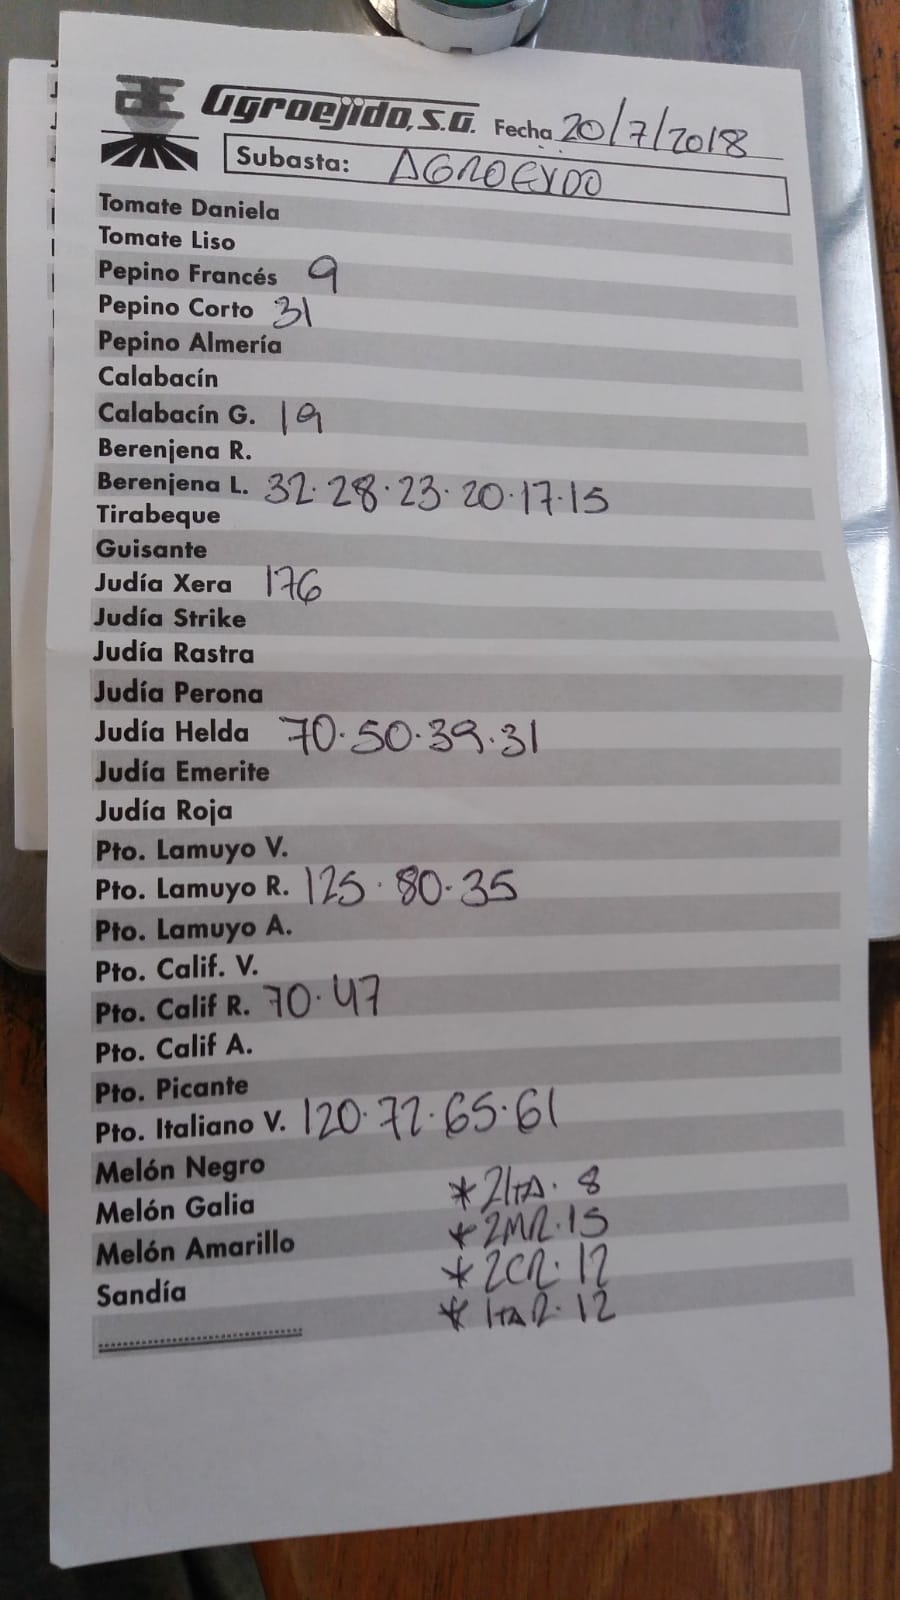 Agroejido, S.A. Fecha 20/7/2018
Subasta: AGROEJIDO
Tomate Daniela
Tomate Liso
Pepino Francés 9
Pepino Corto 31
Pepino Almería
Calabacín
Calabacín G. 19
Berenjena R.
Berenjena L. 32·28·23·20·17·15
Tirabeque
Guisante
Judía Xera 176
Judía Strike
Judía Rastra
Judía Perona
Judía Helda 70·50·39·31
Judía Emerite
Judía Roja
Pto. Lamuyo V.
Pto. Lamuyo R. 125·80·35
Pto. Lamuyo A.
Pto. Calif. V.
Pto. Calif R. 70·47
Pto. Calif A.
Pto. Picante
Pto. Italiano V. 120·72·65·61
Melón Negro
Melón Galia * 2ITA· 8
Melón Amarillo * 2MR·15
Sandía * 2CR· 12
* ITAR· 12